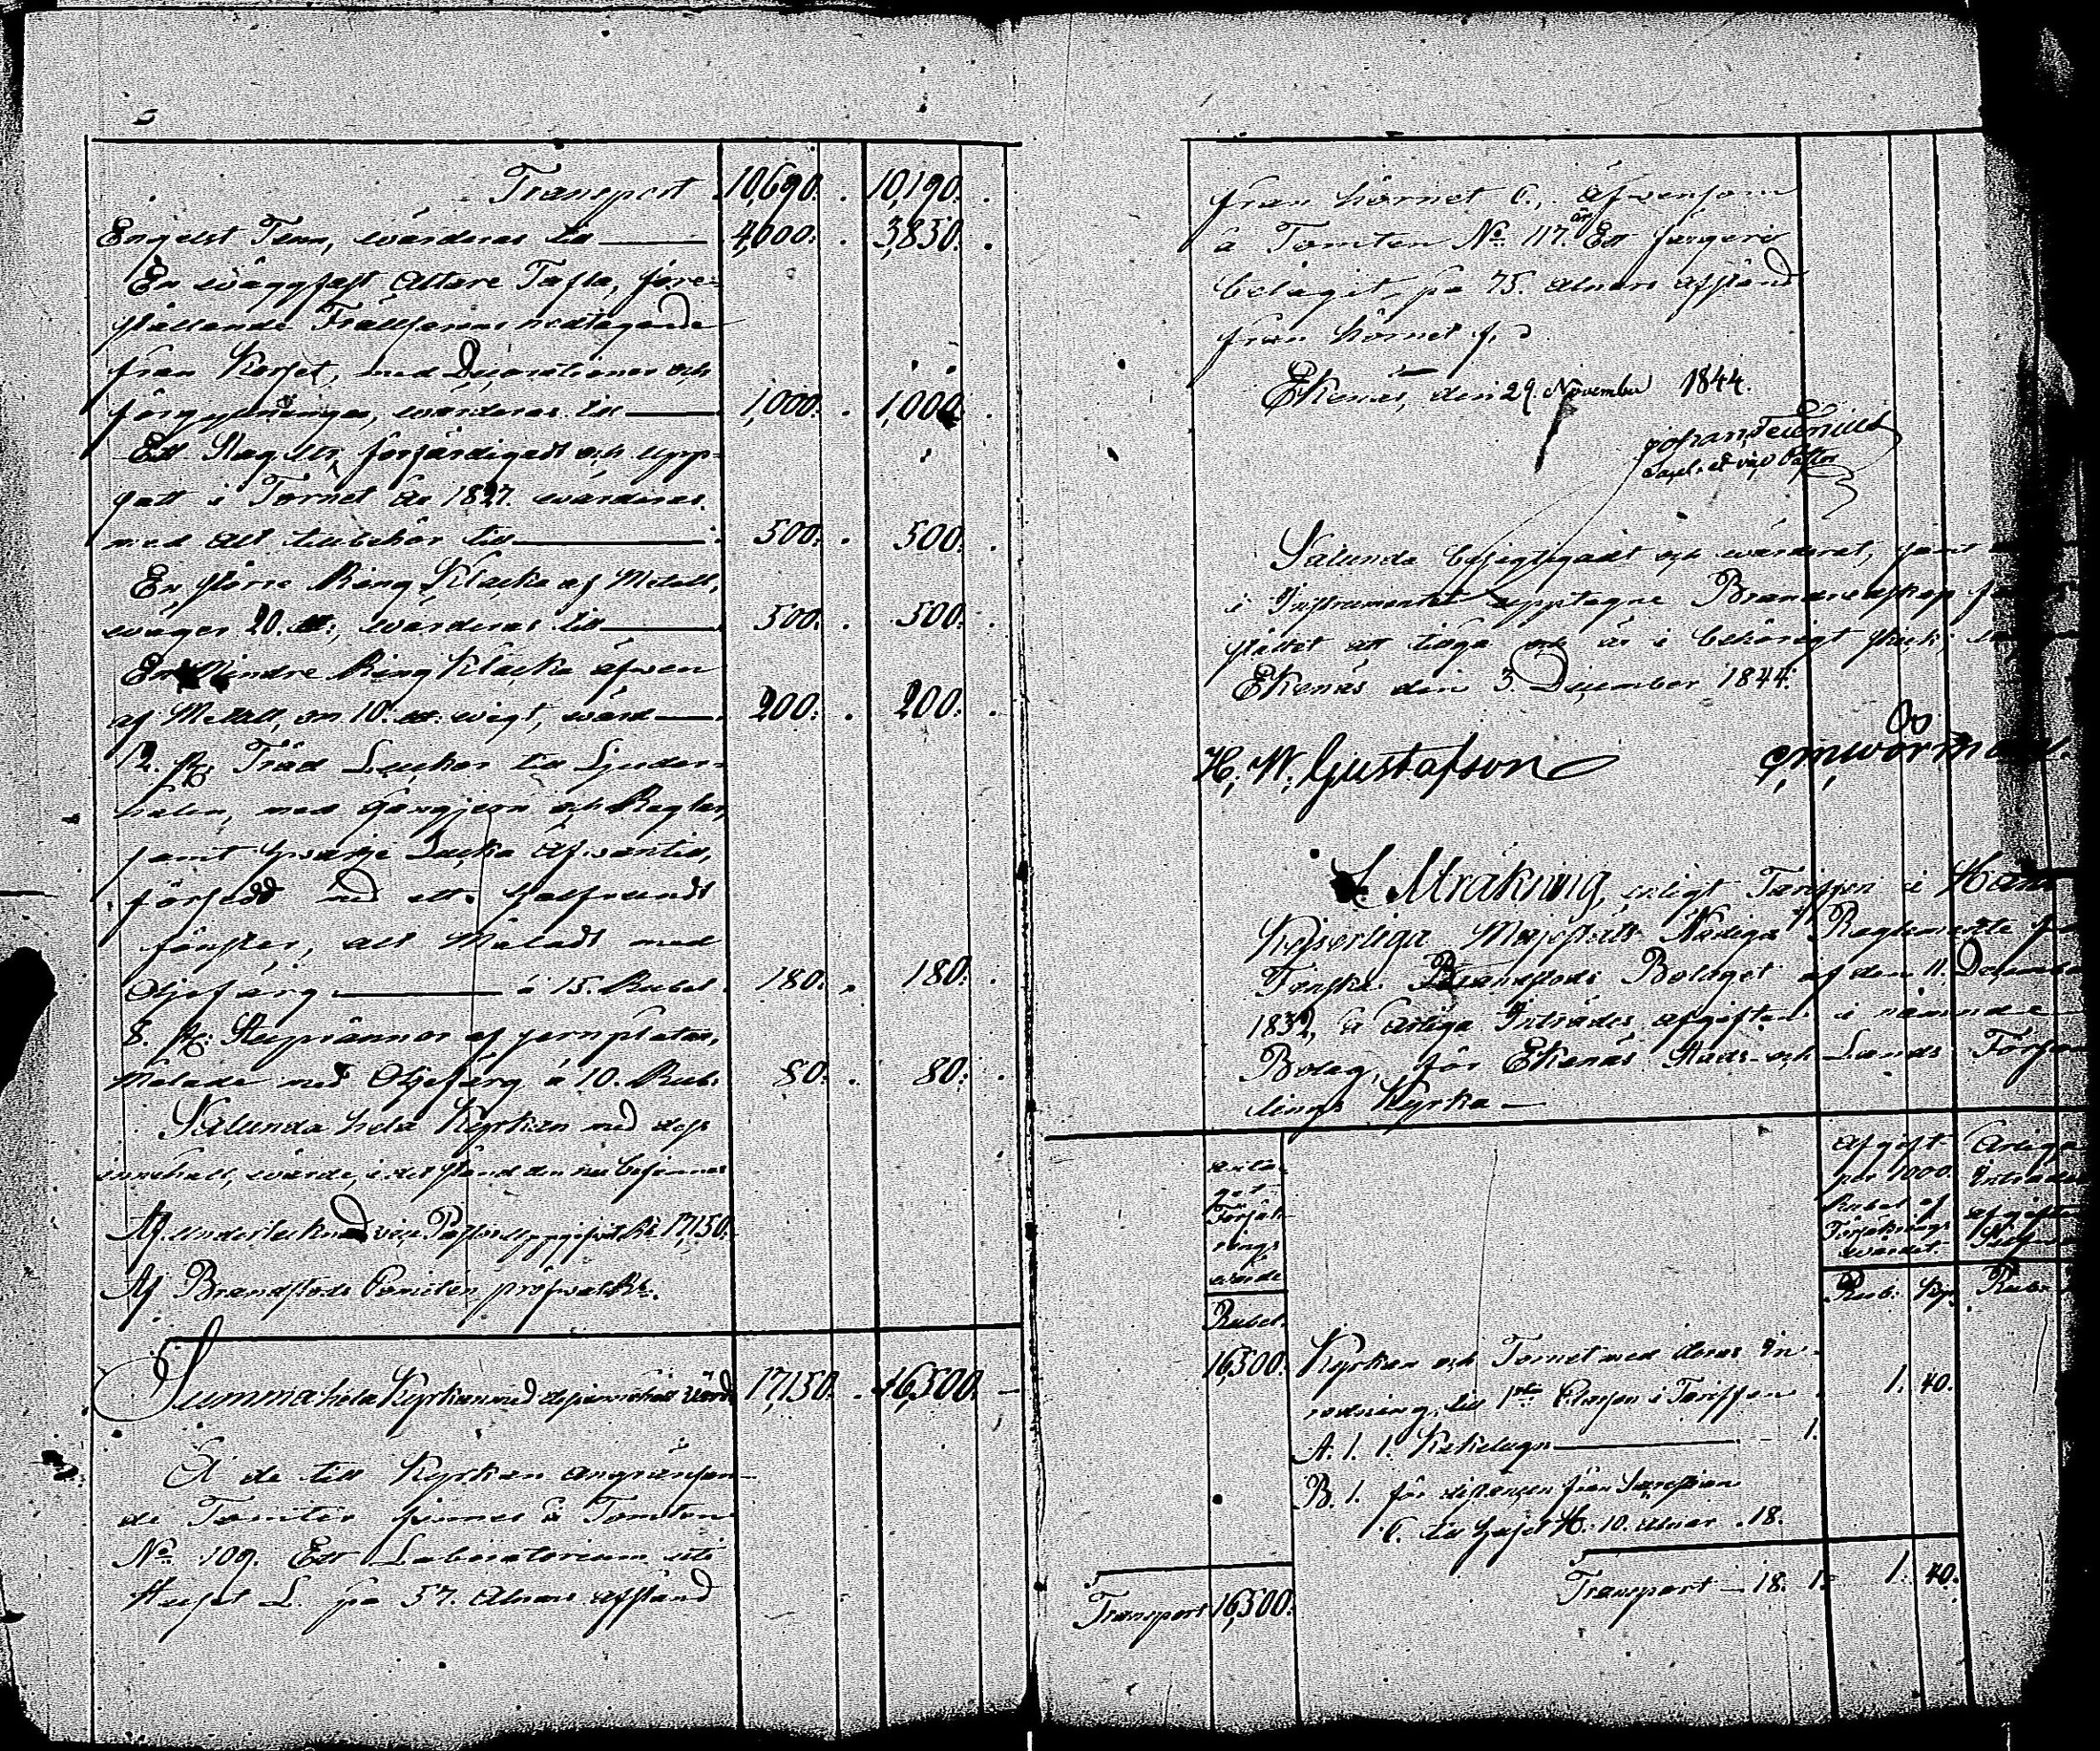 Transport 10,690. 10,190.
Engelst Tenn, wärderas till 4,000. 3,830.
En wäggfast Altare Tafla, före-
ställande Frälsarens nedtagande
från Korset, med Decorationer och
förgyllningar, wärderas till 1,000. 1,000.
Ett Slagur, förfärdigadt och upp-
satt i Tornet år 1827. wärderas
med allt tillbehör till 500. 500.
En större Ring Klocka af Metall,
wäger 20. wärderas till 500. 500.
En Mindre Ring Klocka äfwen
af Metall, om 10. wigt, wärd 200. 200.
12. st. Träd Luckor till Ljuder-
hålen, med Gångjern och Reglar,
samt hwarje Lucka Afwantill,
försedd med ett halfrundt
fönster, allt Måladt med
Oljefärg à 15. Rubel 180. 180.
8. st. Stuprännor af jernplåtar,
Målade med Oljefärg à 10. Rub. 80. 80.
Sålunda hela Kyrkan med dess
innehåll, wärde, i det stånd den nu befinnes
Af Undertecknad vice Pastor uppgifvit Rub. 17,150.
Af Brandstods Comiten pröfwat Rb.
Summa hela Kyrkan med dess innehåll Värde 17,150. 16,500.
Å de till Kyrkan angränsan-
de Tomter finnes å Tomten
No. 109. Ett Laboratorium uti
Huset L. på 57. Alnars afstånd
från hörnet C., äfwensom
å Tomten No. 117. är Ett färgeri
beläget på 75. Alnars afstånd
från hörnet f.
Ekenäs, den 29. November 1844.
Johan
Capl. et vice Pastor
Sålunda besigtigadt och wärderat, samt
i Instrumentet upptagne Brandredskap
stället att tillgå och är i behörigt skick;
Ekenäs den 3. December 1844.
H. W. Gustafson
Uträkning, enligt Tariffen i Hans
Kejserliga Majestäts Nådiga Reglemente
Finska Brandstods Bolaget af den 11. December
1832, å årliga Inträdes afgiften i nämnde
Bolag, för Ekenäs Stads och Lands Försam-
lings Kyrka
Anta-
get
Försäk-
rings
wärde
Rubel.
Afgift
per 1000
Rubel af
Försäkrings
wärdet.
Rub. Kop.
Årlige
Inträdes
afgiften
Rub.
16,500. Kyrkan och Tornet med deras In-
redning, till 1sta Classen i Tariffen 1. 40.
A. 1. 1. Kakelugn 1.
B. 1. för distancen från Sacristian
C. till huset H. 10. alnar 18.
Transport 16,500. Transport 18. 1. 1. 40.